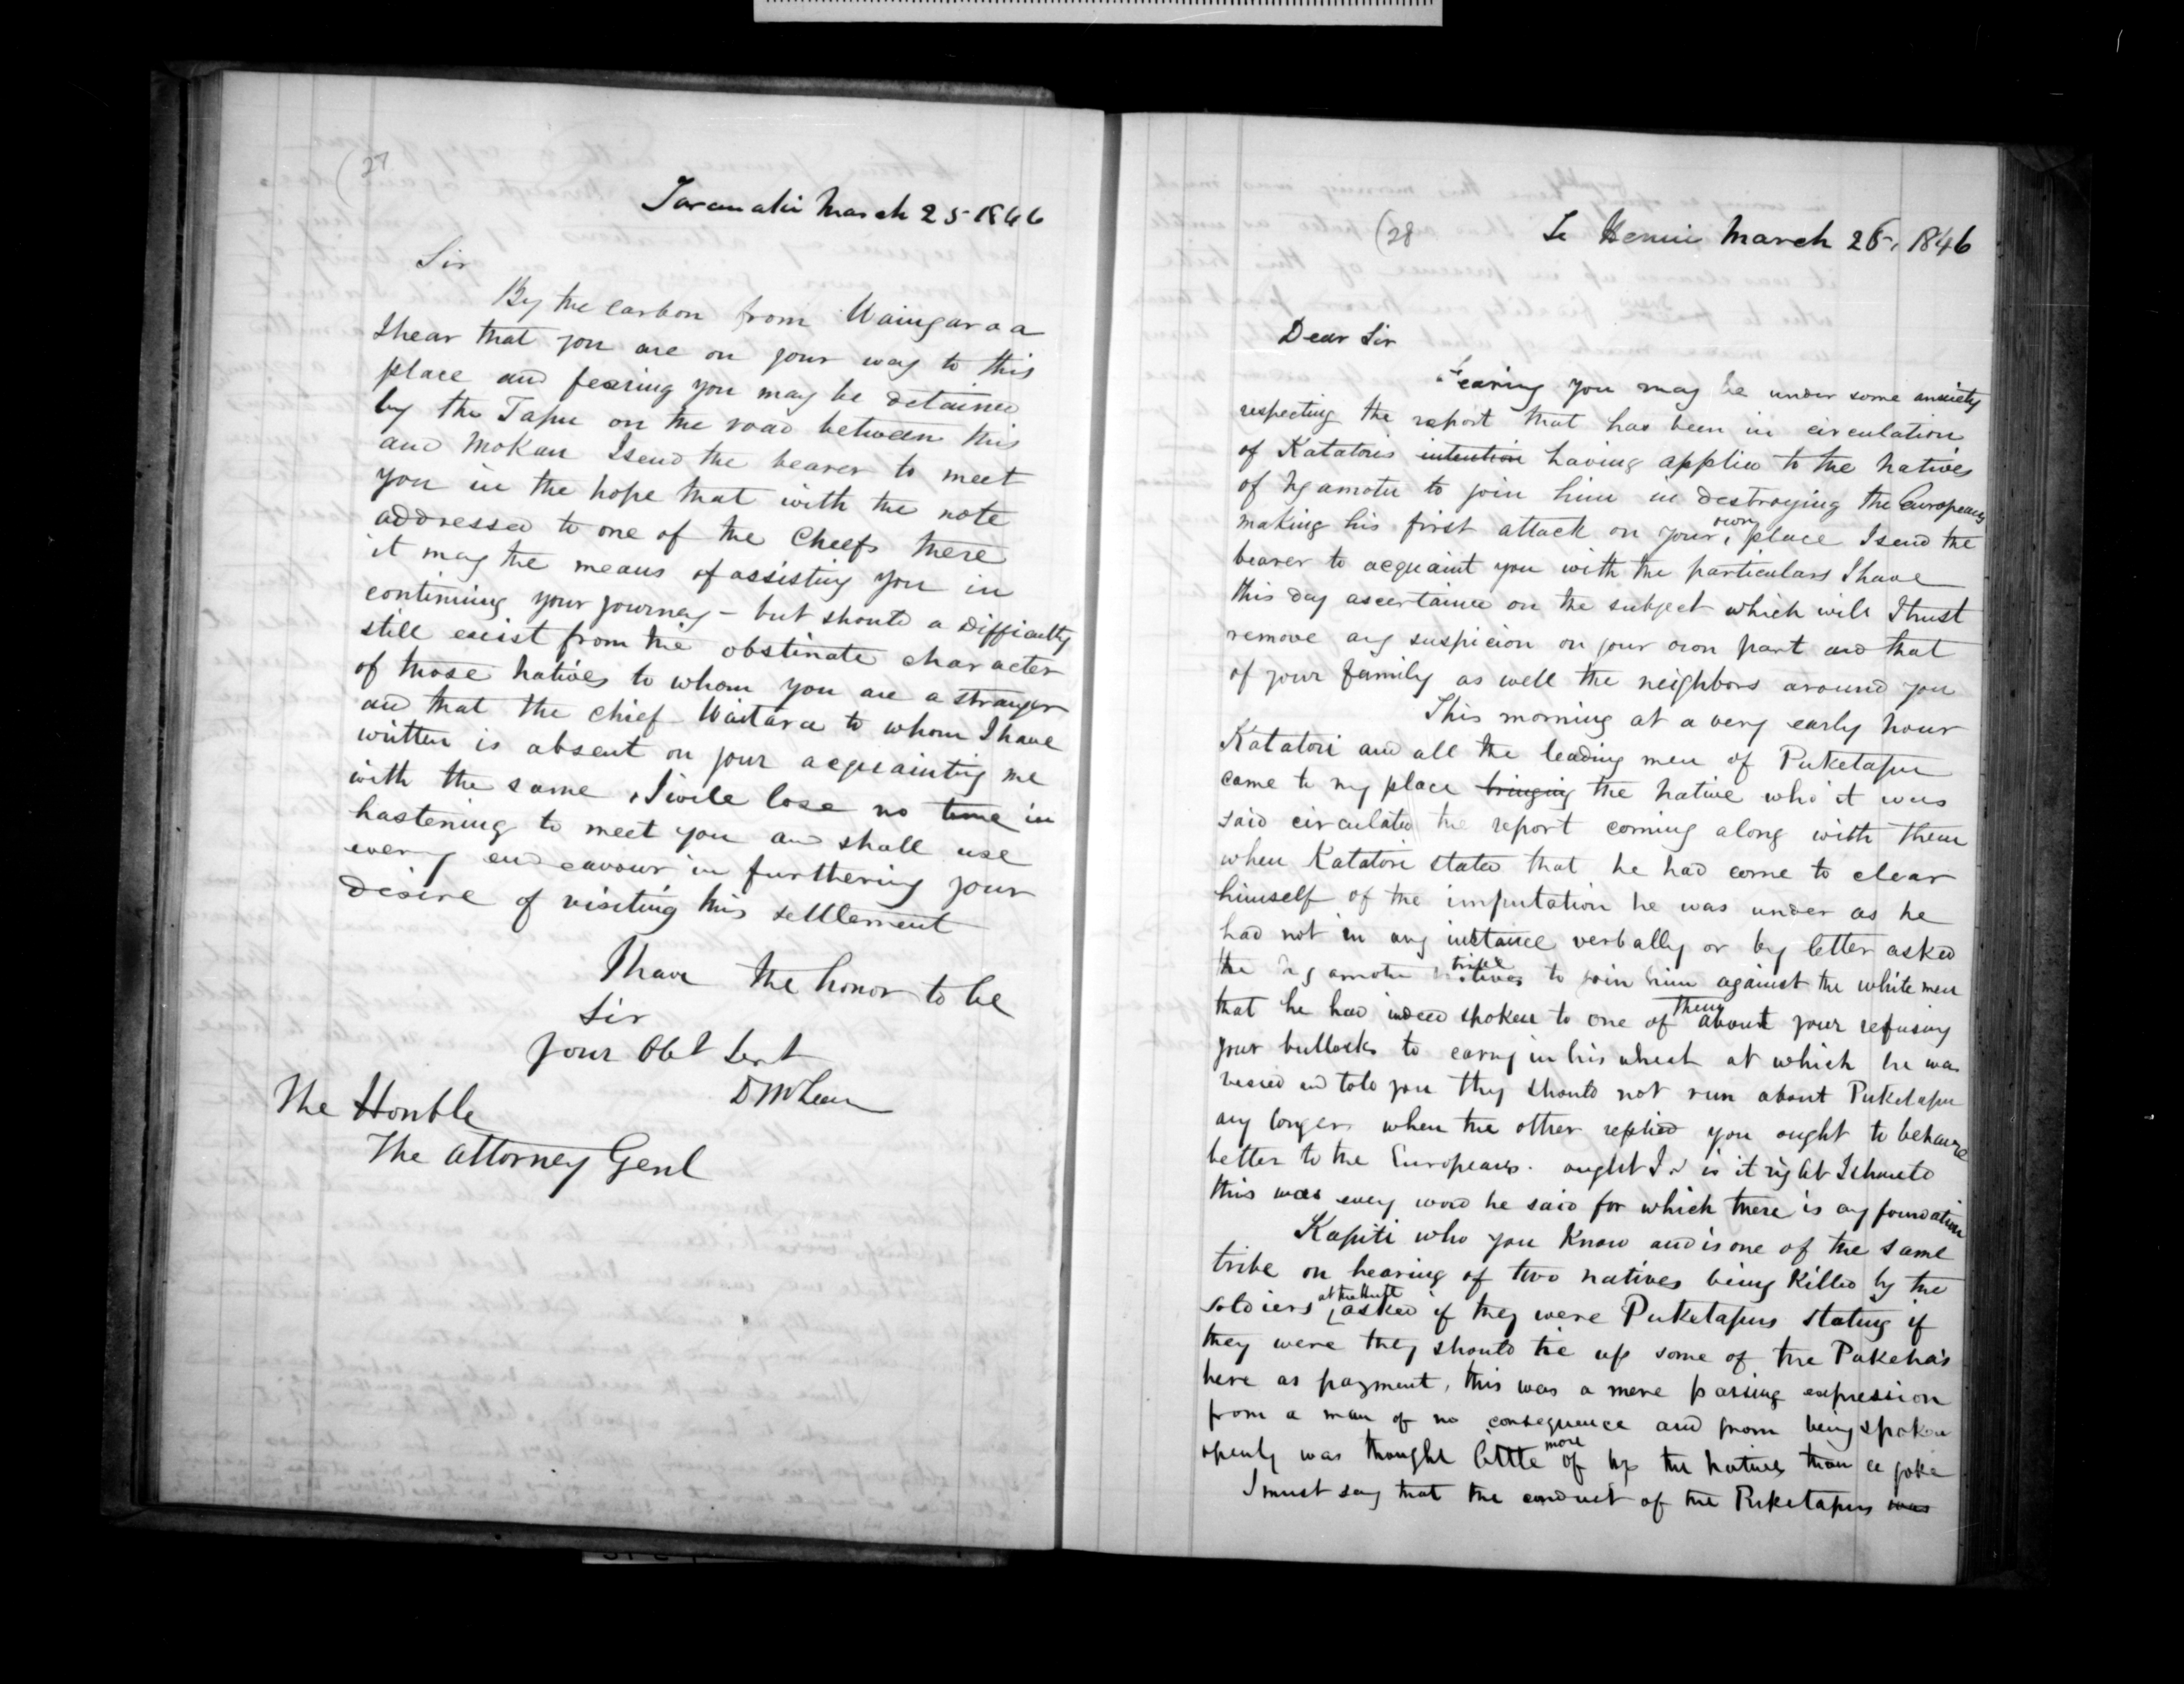 (27
Taranaki March 25 1846
Sir
By the Carbon from Waingaroa
I hear that you are on your way to this
place and fearing you may be detained
by the Tapu on the road between this
and Mokau I send the bearer to meet
you in the hope that with the note
addressed to one of the Cheefs there
it may the means of assisting you in
continuing your journey - but should a difficulty
still exist from the obstinate character
of those natives to whom you are a stranger
and that the chief Waitara to whom I have
written is absent on your acquainting me
with the same, I will lose no time in
hastening to meet you and shall use
every endeavour in furthering your
desire of visiting this settlement
I have the honor to be
Sir
your Obt Sert
D McLean
The Honble
The Attorney Genl
(28
Te Henui March 26, 1846
Dear Sir
Fearing you may be under some anxiety
respecting the report that has been in circulation
of Katatoris intention having applied to the natives
of Ngamotu to join him in destroying the Europeans
making his first attack on your own place I send the
bearer to acquaint you with the particulars I have
this day ascertained on the subject which will I trust
remove any suspicion on your own part and that
of your family as well the neighbors around you
This morning at a very early hour
Katatori and all the leading men of Puketapu
came to my place bringing the native who it was
said circulated the report coming along with them
when Katatori stated that he had come to clear
himself of the imputation he was under as he
had not in any instance verbally or by letter asked
the Ngamotu natives tribe to join him against the white men
that he had indeed spoken to one of them about your refusing
your bullocks to carry in his wheat at which he was
vexed and told you they should not run about Puketapu
any longer when the other replied you ought to behave
better to the Europeans. ought I & is it right I should
this was every word he said for which there is any foundation
Kapiti who you know and is one of the same
tribe on hearing of two natives being killed by the
soldiers at the Hutt asked if they were Puketapus stating if
they were they should tie up some of the Pakeha's
here as payment, this was a mere passing expression
from a man of no consequence and from being spoken
openly was thought little more of by the natives than a joke
I must say that the conduct of the Puketapus was